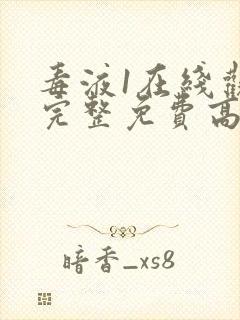 毒液1在线觀
完整免費高
暗香_xs8